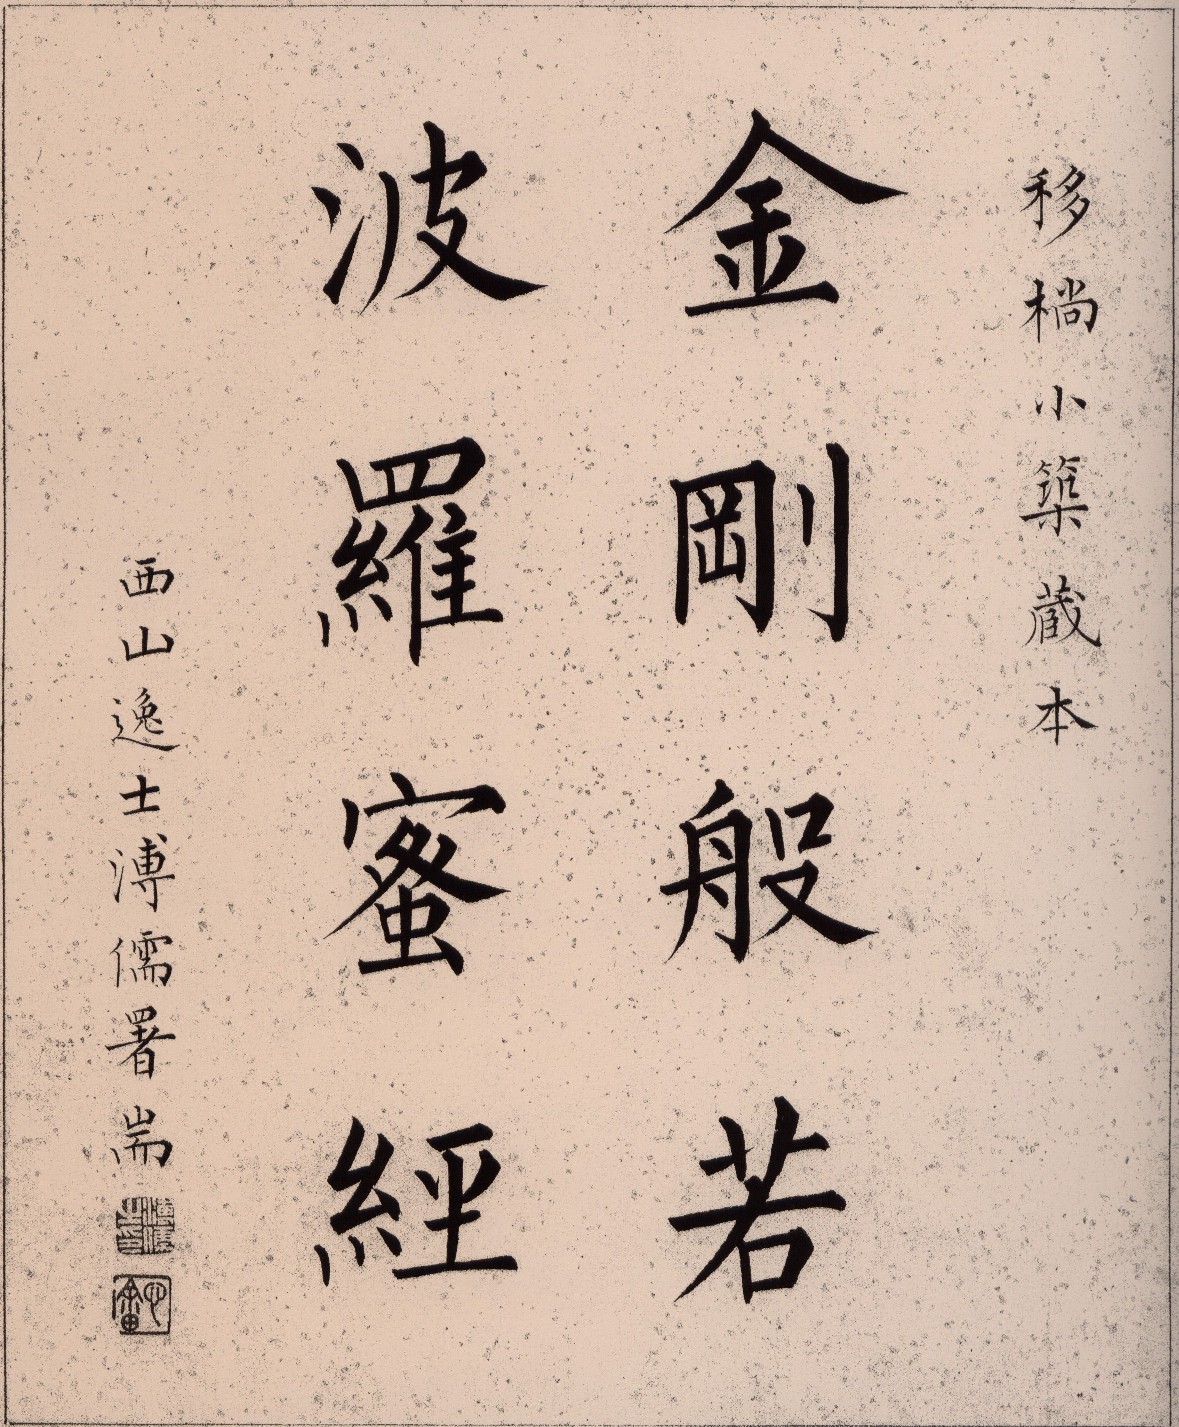 移樠小築蔵本
金剛般若
波羅蜜經
西山逸士溥儒署耑